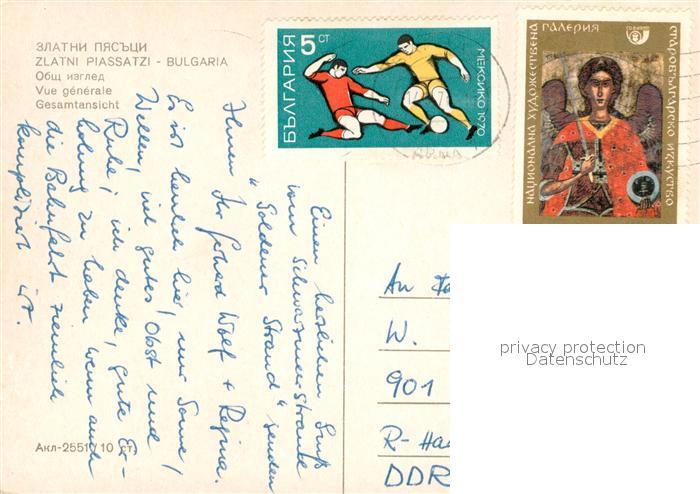 ЗЛАТНИ ПЯСЪЦИ
ZLATNI PIASSATZI - BULGARIA
Общ изглед
Vue générale
Gesamtansicht
БЪЛГАРИЯ
5 СТ
МЕКСИКО 1970
НАЦИОНАЛНА ХУДОЖЕСТВЕНА
ГАЛЕРИЯ
СТАРОБЪЛГАРСКО ИЗКУСТВО
Einen herzlichen Gruß
vom Schwarzmeer Strande
"Goldener Strand" senden
Ihnen Ihr Wolf + Regina.
Es ist herrlich hier, nur Sonne,
Wellen, viel gutes Obst und
Ruhe, ich denke, gute Er-
holung zu haben wenn auch
die Bahnfahrt ziemlich
kompliziert ist.
An
W.
901
R-
DDR
privacy protection
Datenschutz
Акл-2551 / 10 ст.